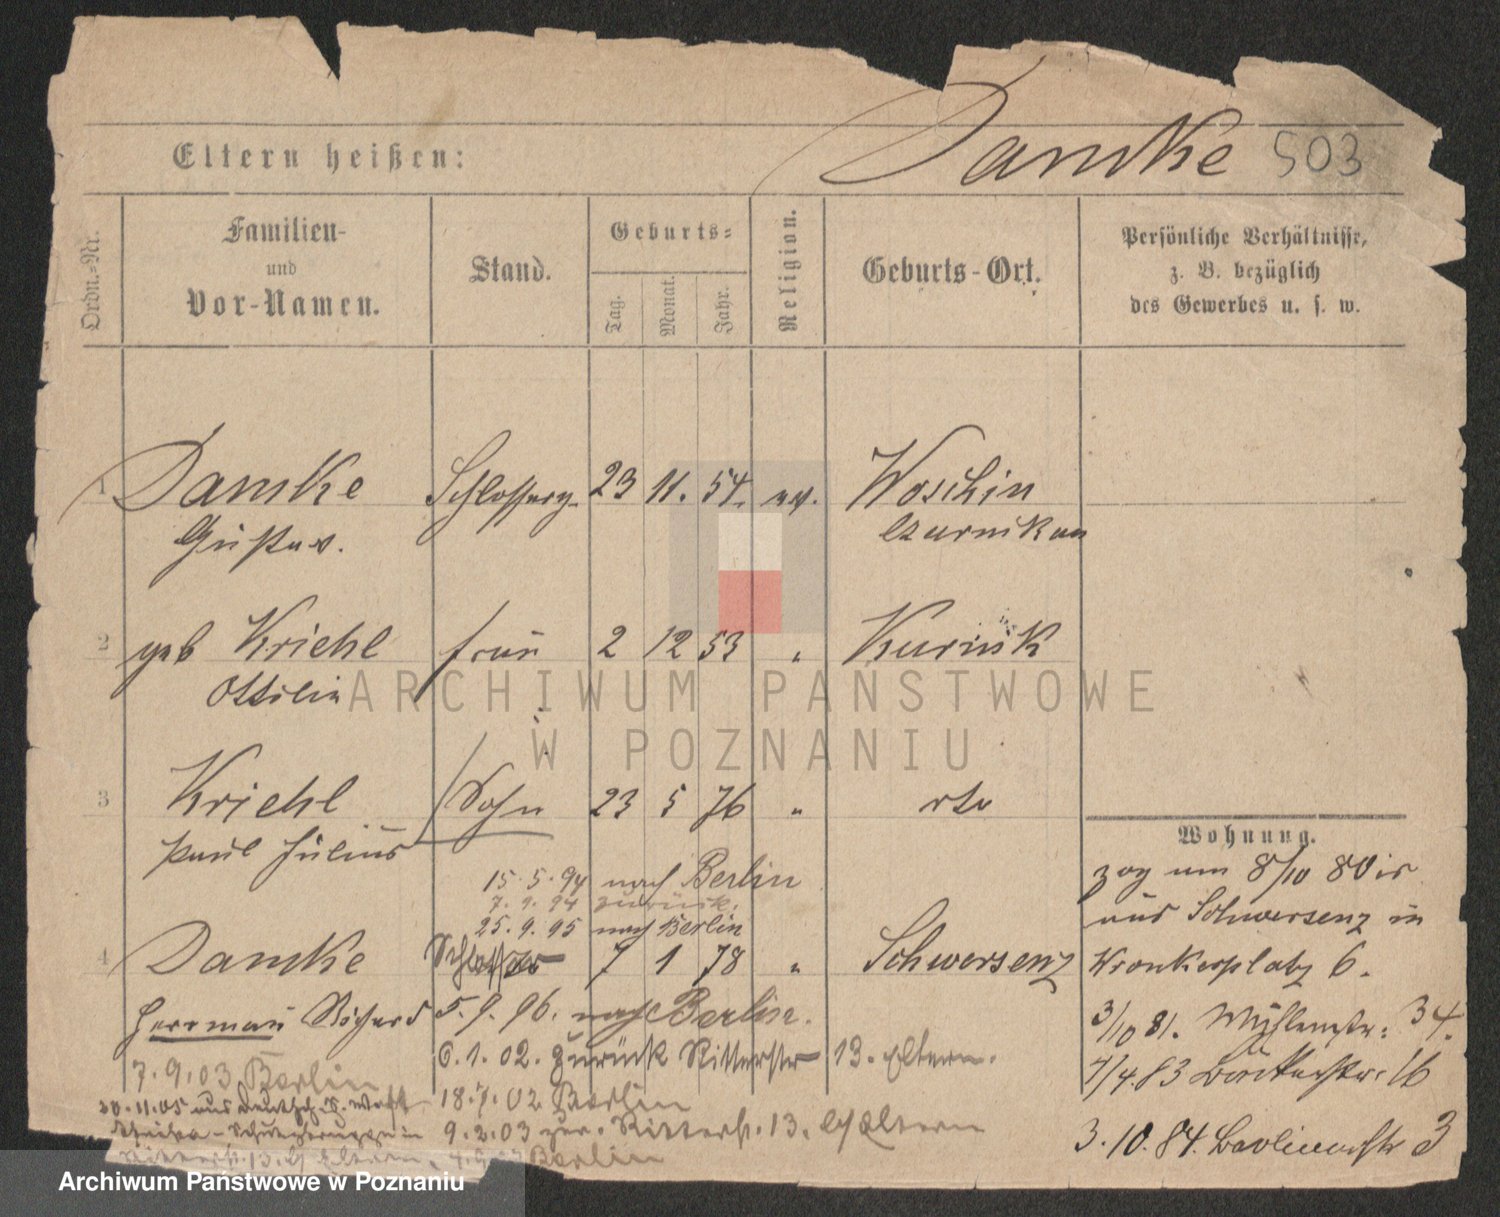 Damke 503
Eltern heißen:
Ordn.=Nr.
Familien-
und
Vor-Namen.
Stand.
Geburts=
Tag.
Monat.
Jahr.
Religion.
Geburts-Ort.
Persönliche Verhältnisse,
z. B. bezüglich
des Gewerbes u. s. w.
1 Damke Schlosserg. 23 11. 54. ev. Woschin
Gustav. Czarnikau
2 geb Kriehl Frau 2 12 53 " Kurnik
Ottilie
3 Kriehl Sohn 23 5 76 " dto
Paul Julius
15. 5. 94 nach Berlin
7. 9. 94 zurück.
25. 9. 95 nach Berlin
4 Damke Schlosser 7 1 78 " Schwersenz
Herrman Richard 5. 9. 96. nach Berlin.
6. 1. 02. zurück Ritterstr 13. Eltern.
7. 9. 03 Berlin
18. 7. 02 Berlin
20. 11. 05 aus Deutsch. S. West
Afrika - in
9. 2. 03 zur. Ritterstr. 13. b/ Eltern
Ritterstr. 13. b/ Eltern. Berlin
Wohnung.
zog am 8/10 80 is
aus Schwersenz in
Wronkerplatz 6.
3/10 81. Mühlenstr. 34.
7/4. 83 Bäckerstr. 16
3. 10. 84. Berlinerstr 3
ARCHIWUM PAŃSTWOWE
W POZNANIU
Archiwum Państwowe w Poznaniu